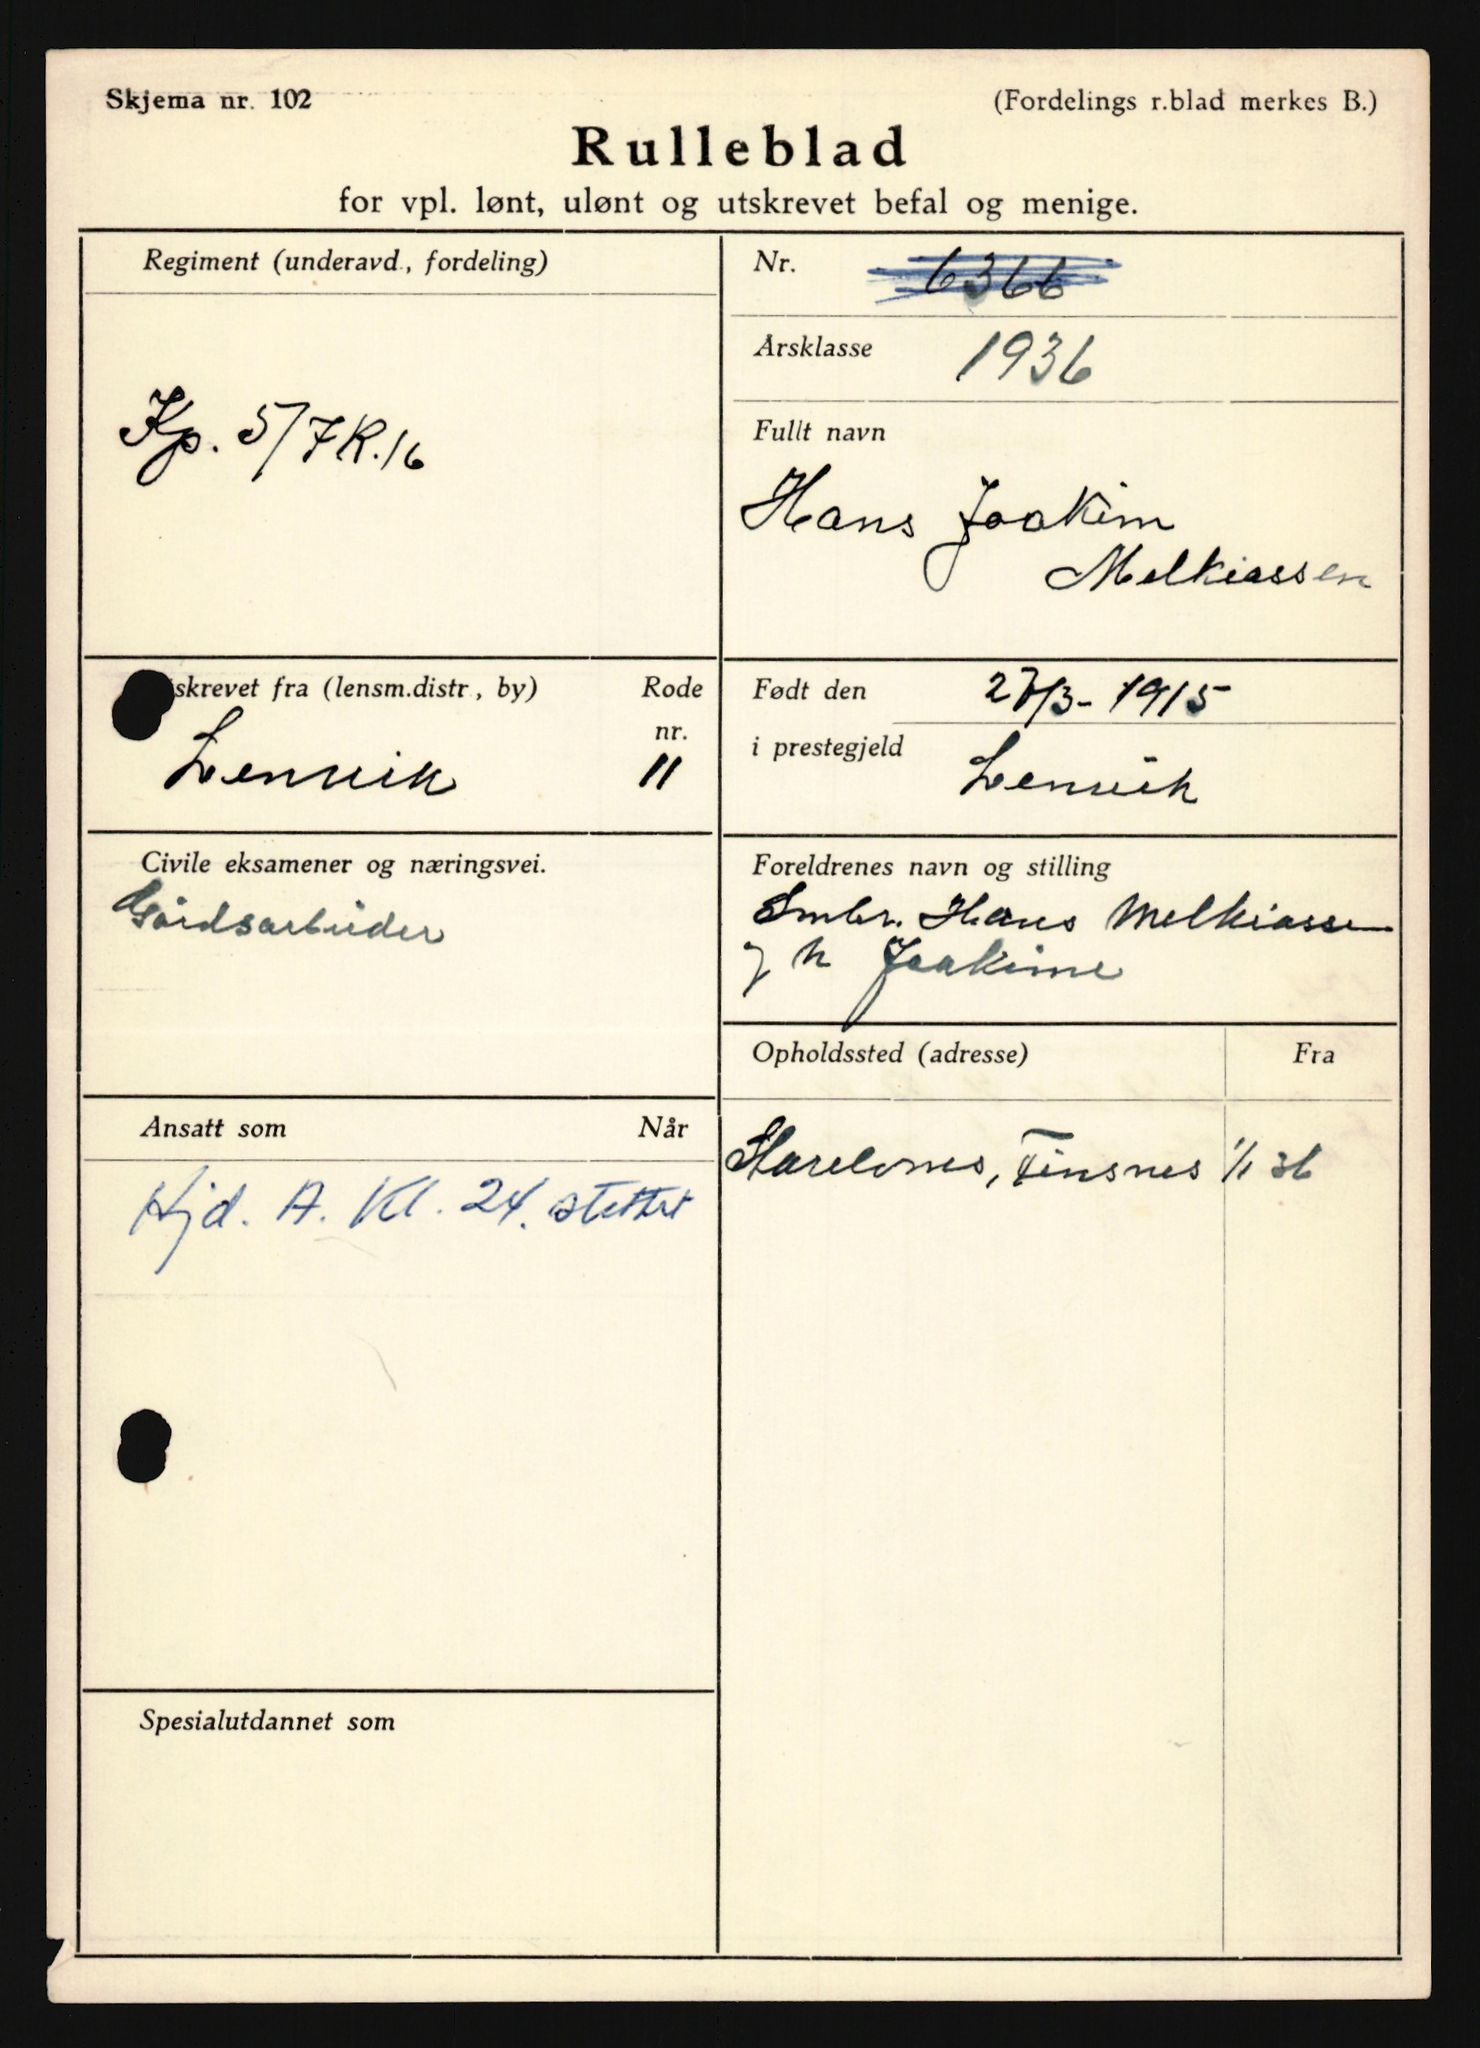 Skjema nr. 102
(Fordelings r.blad merkes B.)
Rulleblad
for vpl. lønt, ulønt og utskrevet befal og menige.
Regiment (underavd., fordeling)
Kp. 5/ I R.16
Nr. 6366
Årsklasse 1936
Fullt navn
Hans Joakim
Melkiassen
skrevet fra (lensm.distr., by) Rode
nr.
Lenvik 11
Født den 27/3-1915
i prestegjeld
Lenvik
Civile eksamener og næringsvei.
Gårdsarbeider
Foreldrenes navn og stilling
Smbr. Hans Melkiassen
og h Joakime
Opholdssted (adresse) Fra
Finsnes 1/1 36
Ansatt som Når
Hjd. A. Kl. 24.
Spesialutdannet som